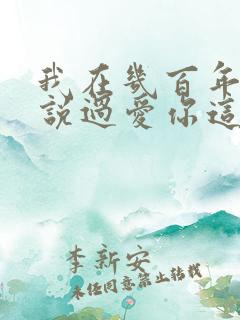 我在幾百年
說過愛你這
李新安
未经同意禁止转载